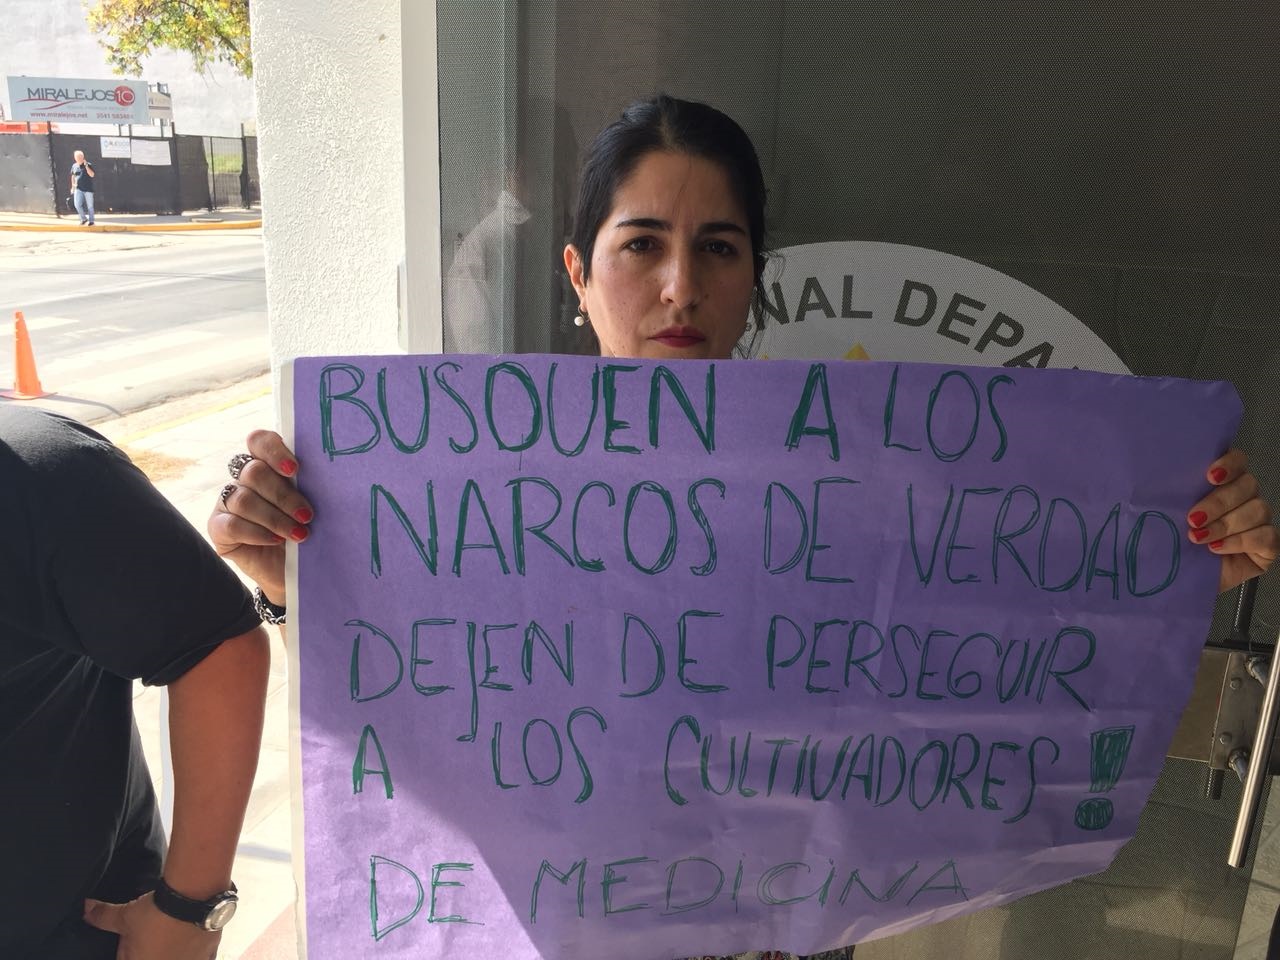 MIRALEJOS10
www.miralejos.net
NAL DEPA
BUSQUEN A LOS
NARCOS DE VERDAD
DEJEN DE PERSEGUIR
A LOS CULTIVADORES!
DE MEDICINA